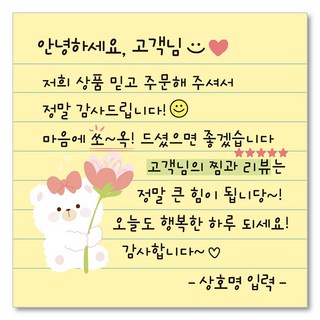 안녕하세요, 고객님
저희 상품 믿고 주문해 주셔서
정말 감사드립니다!
마음에 쏘~옥! 드셨으면 좋겠습니다
고객님의 찜과 리뷰는
정말 큰 힘이 됩니당~!
오늘도 행복한 하루 되세요!
감사합니다~♡
- 상호명 입력 -